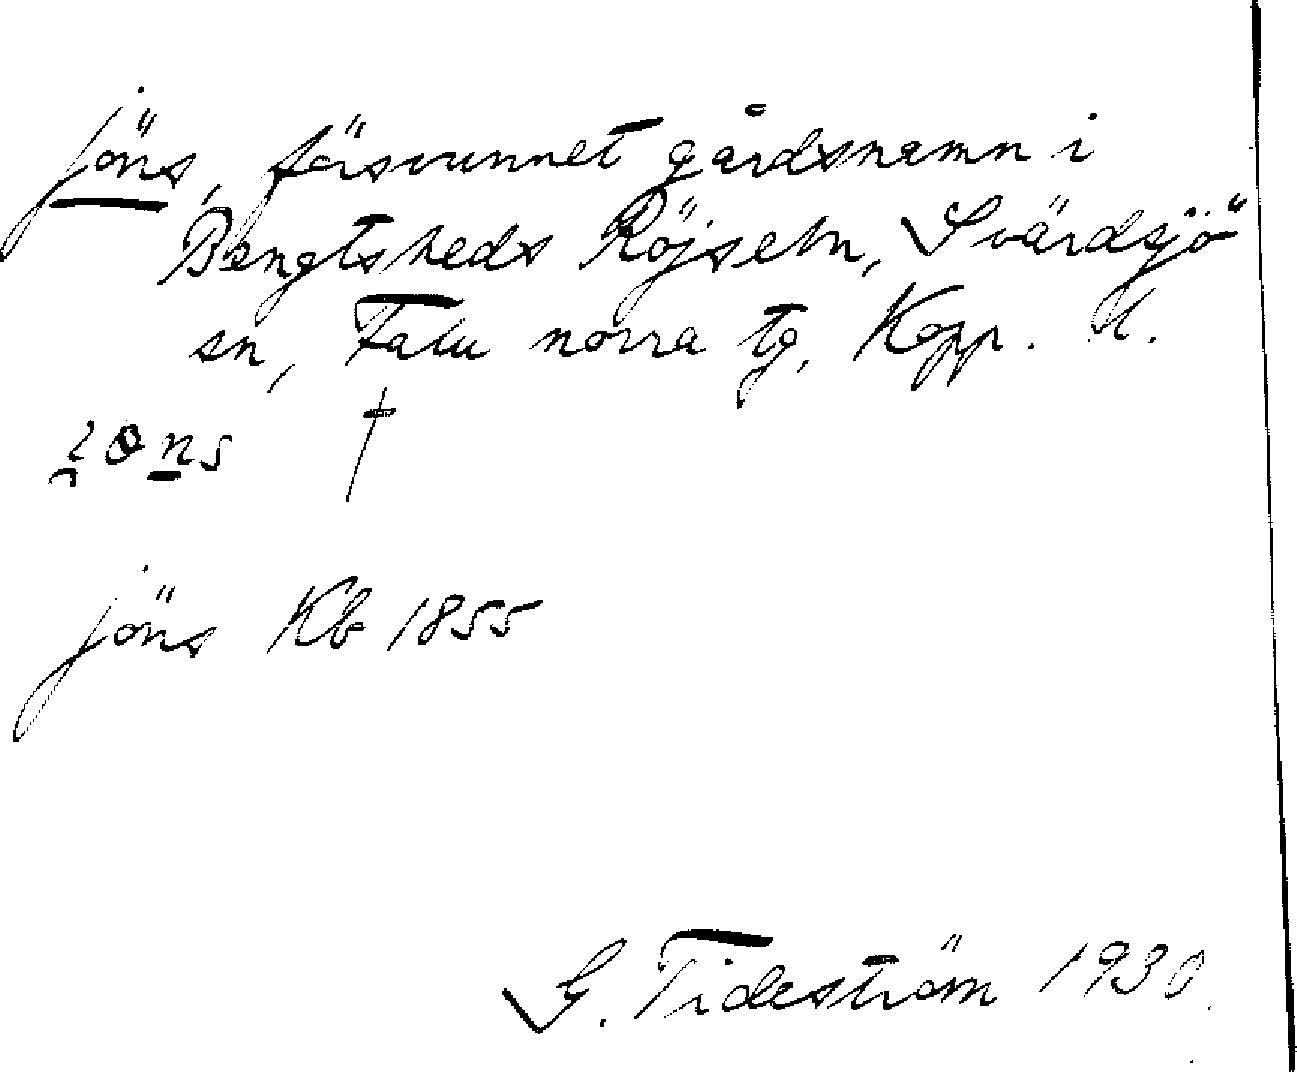 Jöns, försvunnet gårdsnamn i
Bengtsheds Röjseln, Svärdsjö
sn, Falu norra tg, Kopp. l.
i̯ɵns †
Jöns Kb 1855
G. Tideström 1930.